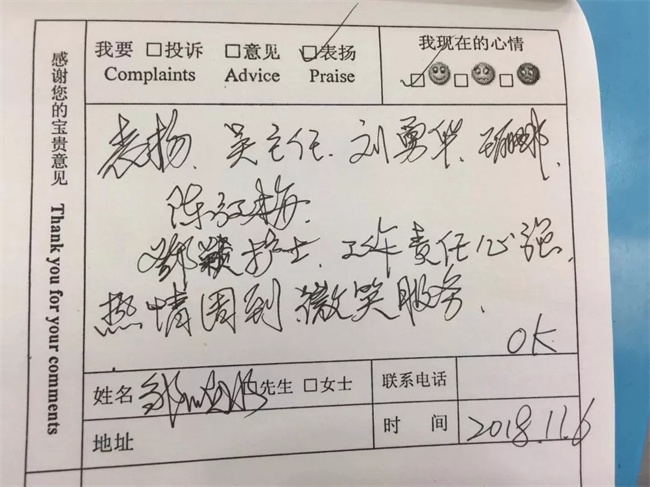 感谢您的宝贵意见 Thank you for your comments
我要 □投诉 □意见 □表扬
Complaints Advice Praise
我现在的心情
表扬. 吴主任. 刘勇华.
陈红梅.
护士. 工作责任心强.
热情周到 微笑服务.
OK
姓名 □先生 □女士 联系电话
地址 时 间 2018.11.6